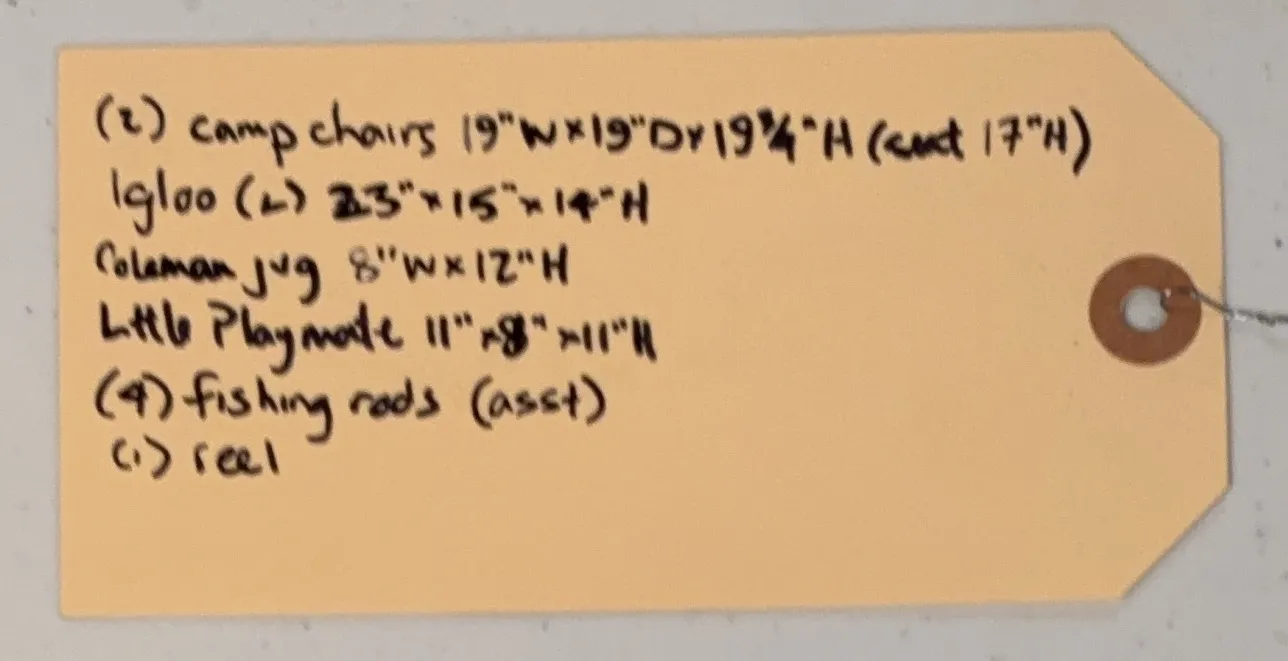 (2) camp chairs 19"W x 19"D x 19 3/4"H (seat 17"H)
Igloo (L) 23" x 15" x 14"H
Coleman jug 8"W x 12"H
Little Playmate 11" x 8" x 11"H
(4) fishing rods (asst)
(1) reel